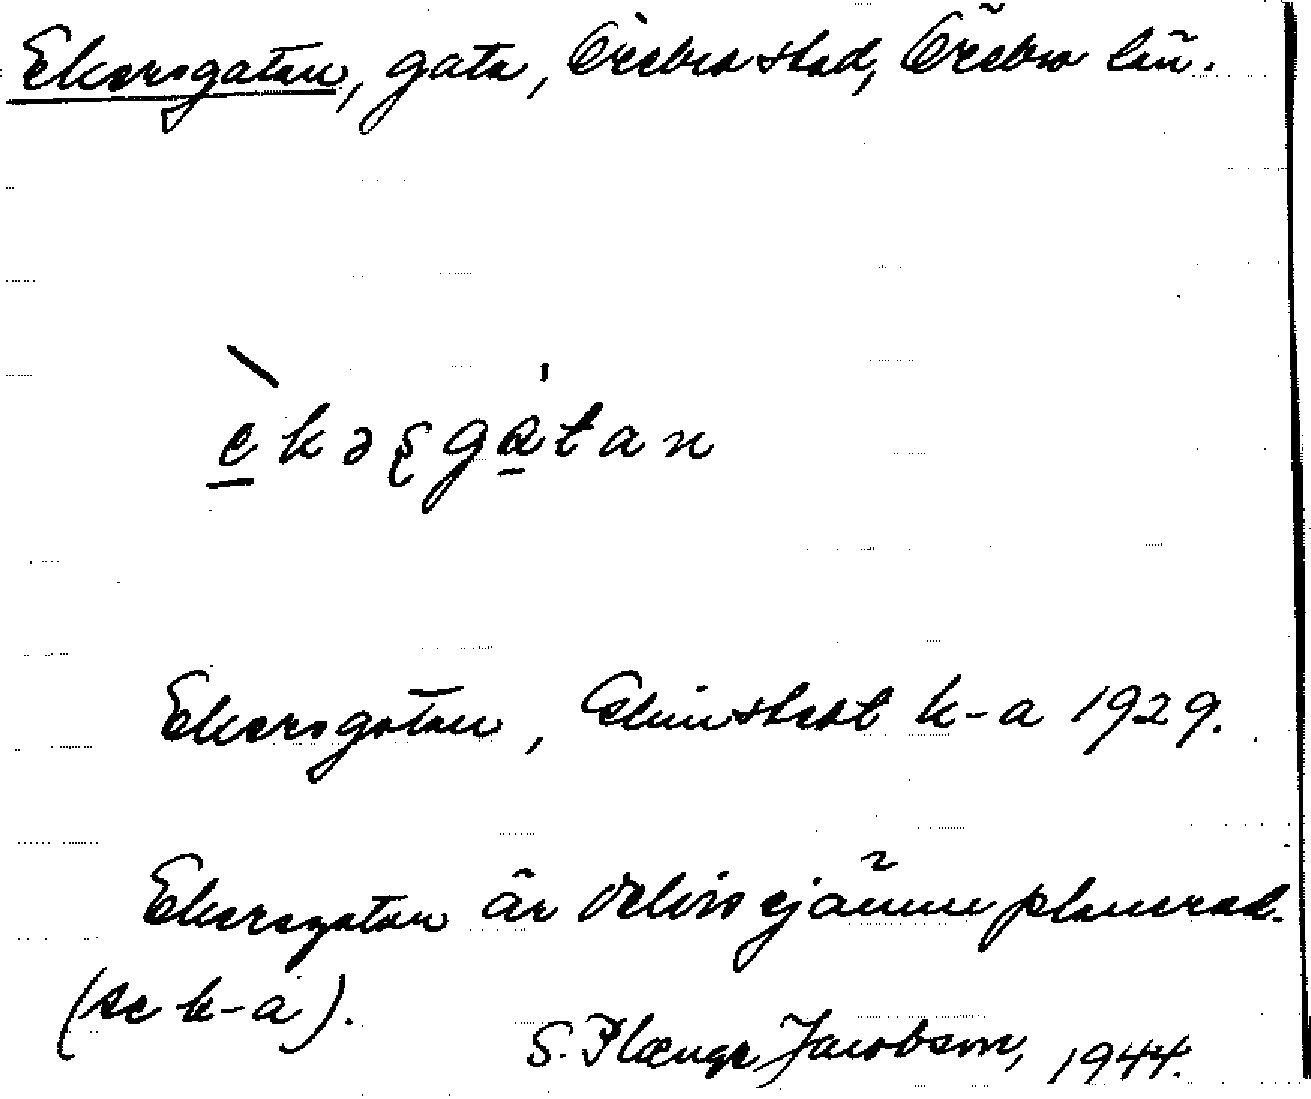 Ekersgatan, gata, Örebro stad, Örebro län.
ekəşgatan
Ekersgatan, Elmstedt k-a 1929.
Ekersgatan är delvis ej ännu planerad.
(se k-a).
S. Plænge Jacobson, 1944.